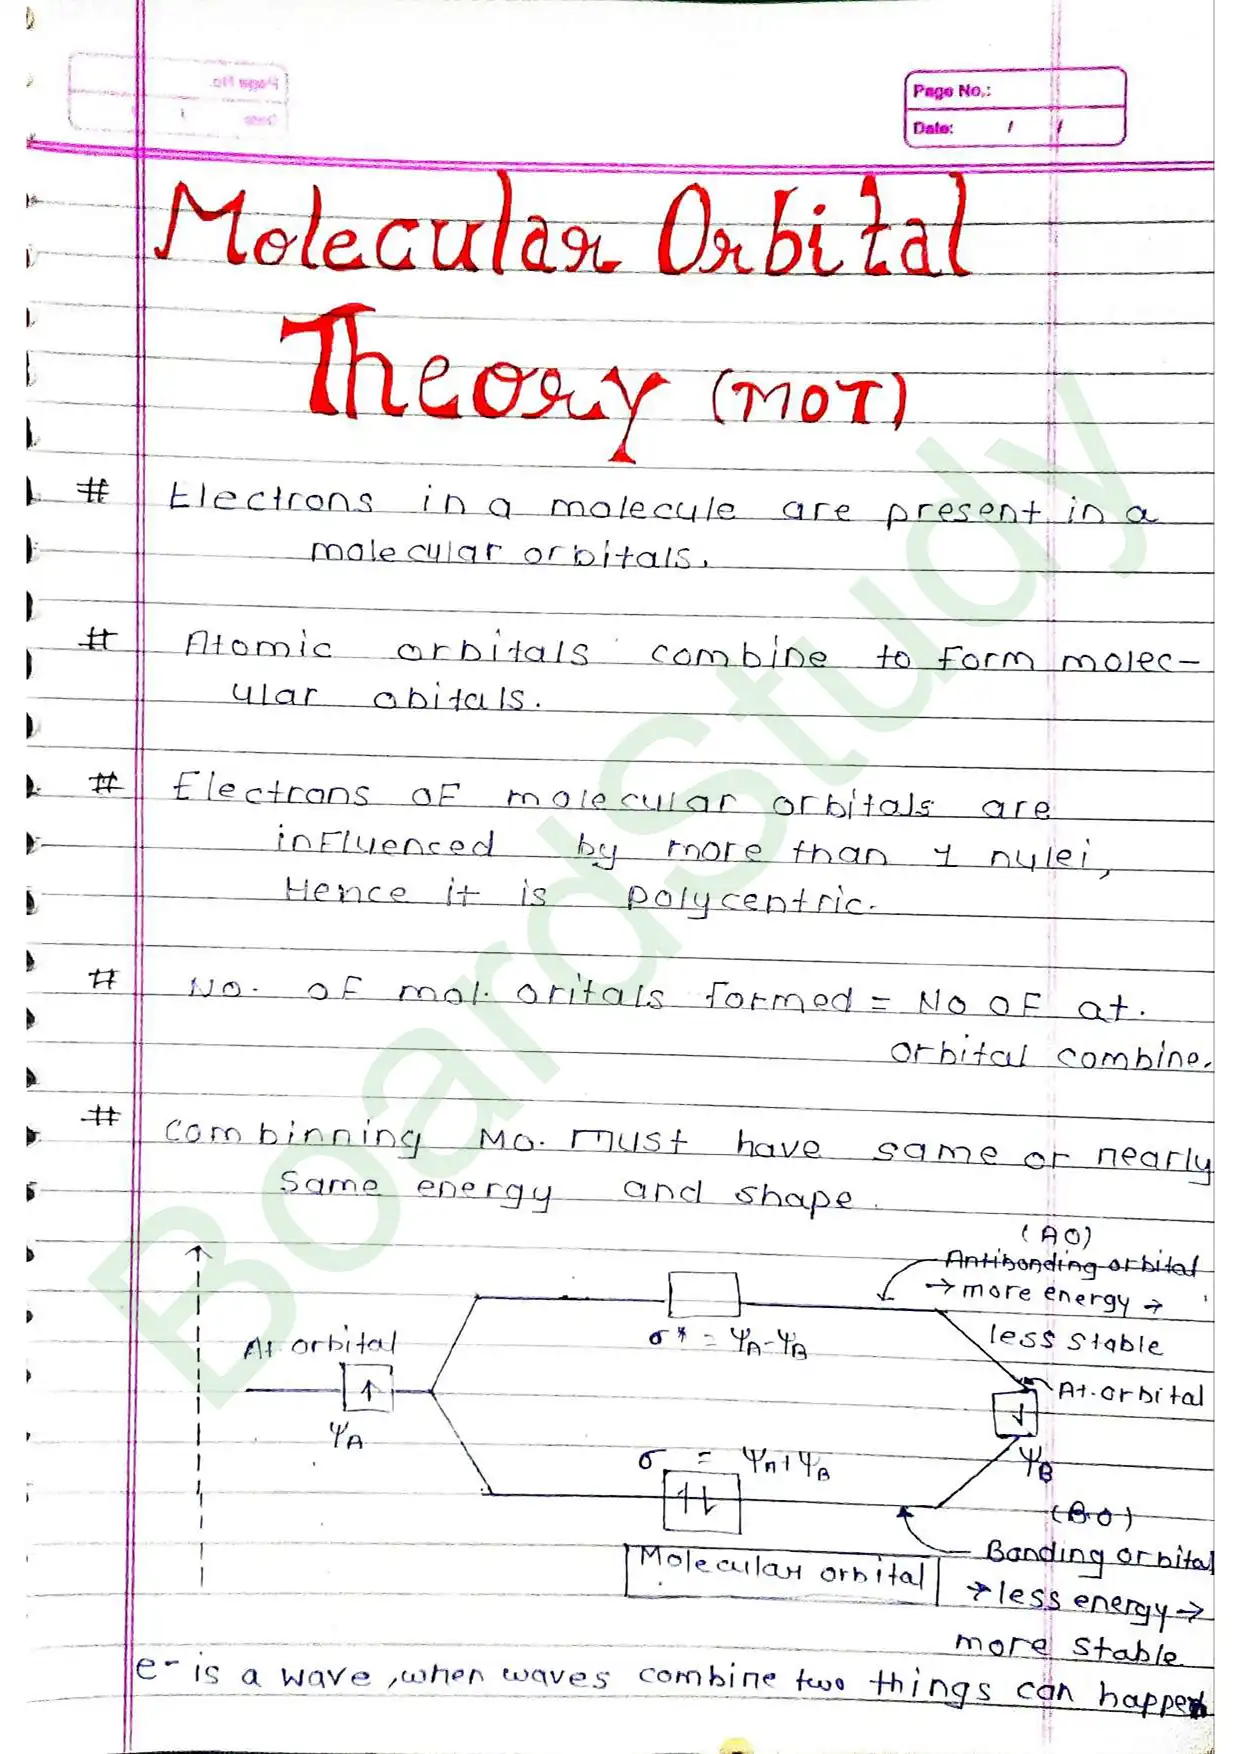 Page No.:
Date: / /
Molecular Orbital
Theory (MOT)
# Electrons in a molecule are present in a
molecular orbitals.
# Atomic orbitals combine to form molec-
ular obitals.
# Electrons of molecular orbitals are
influenced by more than 1 nulei,
Hence it is polycentric.
# No. of mol. oritals formed = No of at.
orbital combine.
# Combinning Mo. must have same or nearly
same energy and shape.
(AO)
Antibonding orbital
→ more energy →
less stable
σ* = ψA-ψB
At orbital
↑
ψA
At. orbital
↓
ψB
σ = ψA+ψB
↑↓
(B.O)
Banding orbital
Molecular orbital
→ less energy →
more stable
e- is a wave, when waves combine two things can happen
BoardStudy